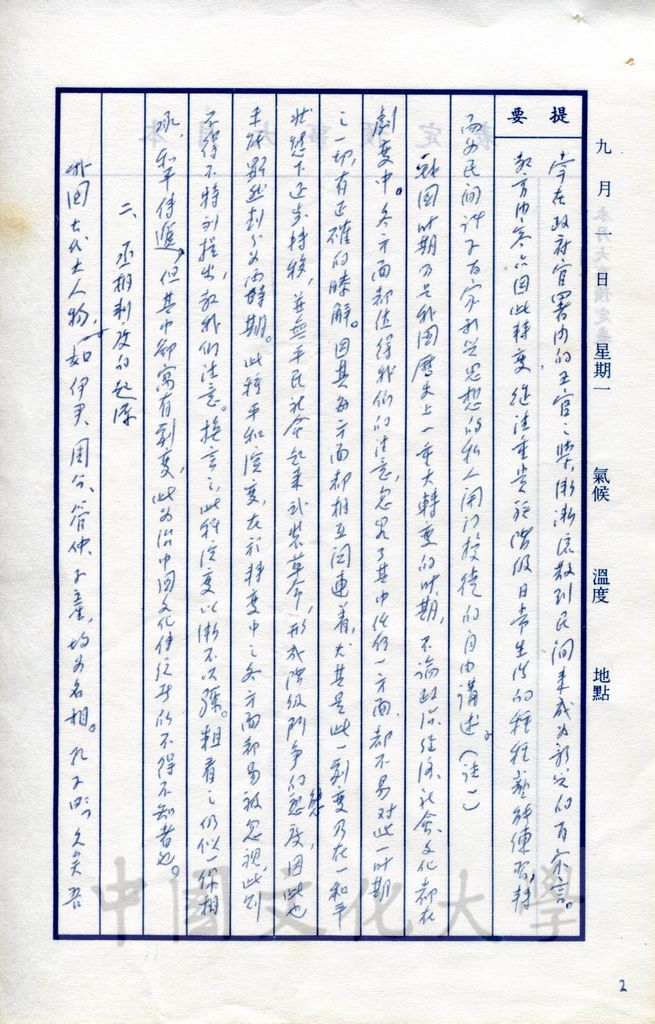 九 月 日 星期一 氣候 溫度 地點
提要
掌在政府官署內的王官之學,漸漸流散到民間來成為新興的百家言。
教育內容亦因此轉變,從注重貴族階級日常生活的種種藝能練習,轉
而為民間諸子百家新興思想的私人開門授徒的自由講述。(註一)
戰國時期乃是我國歷史上一重大轉變的時期,不論政治經濟、社會、文化都在
劇變中。各方面都值得我們的注意,忽略了其中任何一方面,都不易對此一時期
之一切,有正確的瞭解。因其每方面都相互關連着,尤其是此一劇變乃在一和平
狀態下逐步轉移,並無平民社會起來武裝革命,形成階級鬥爭的態度,因此也
未能顯然劃分為兩時期。此種平和演變,在於轉變中之各方面都易被忽視,此則
不得不特別提出,教我們注意。換言之,此種演變以漸不以驟。粗看之仍似一件相
承,和平傳遞,但其中卻寓有劇變,此為治中國文化傳統者所不得不知者也。
二、丞相制度的起源
我國古代大人物,如伊尹、周公、管仲、子產,均為名相。孔子嘆久矣吾
中國文化大學
2